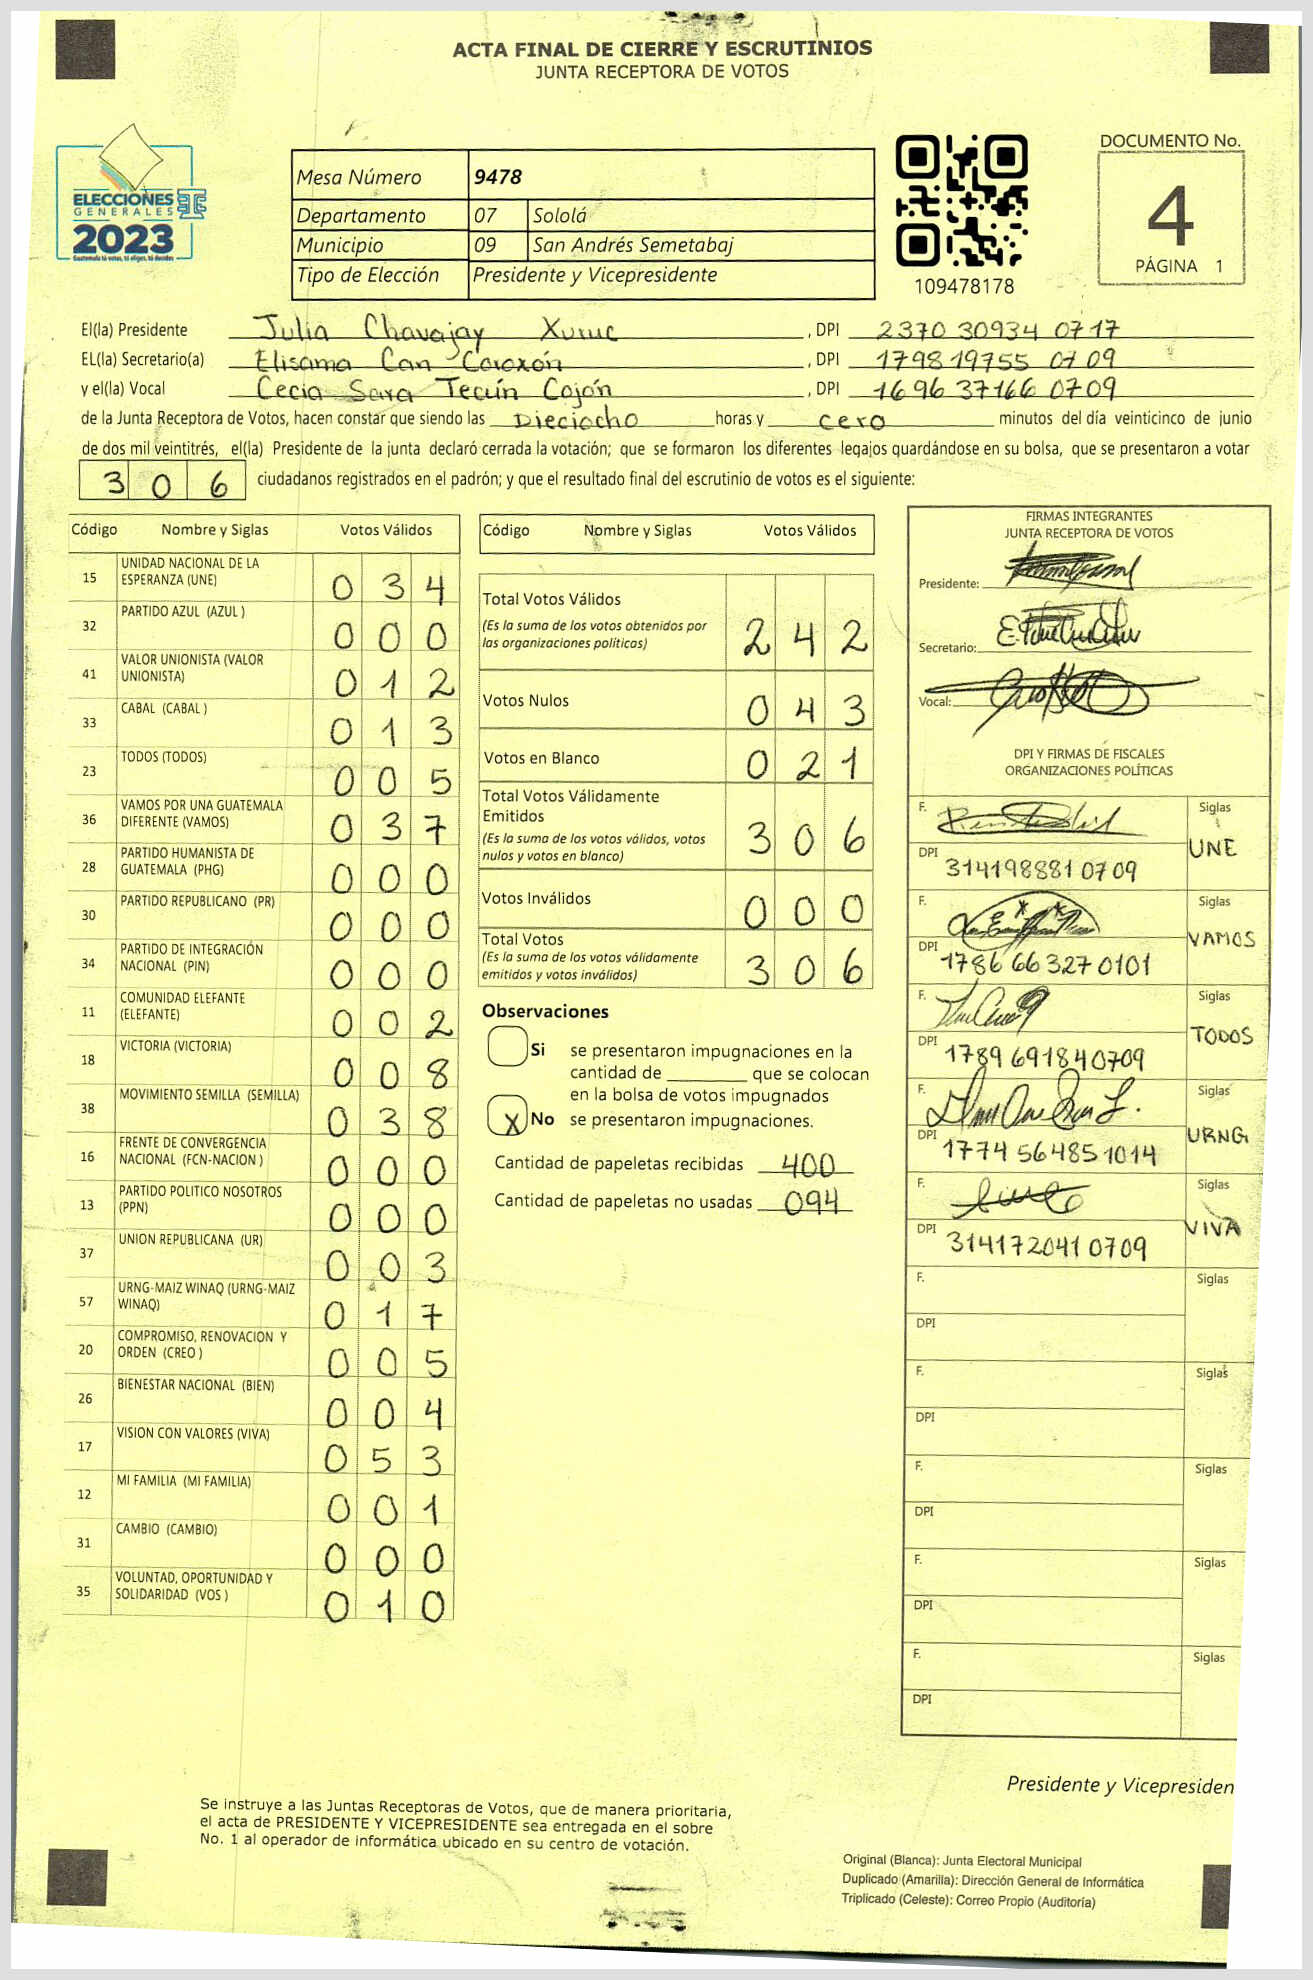 ACTA FINAL DE CIERRE Y ESCRUTINIOS
JUNTA RECEPTORA DE VOTOS
ELECCIONES
GENERALES
2023
Guatemala tú votas, tú eliges, tú decides
Mesa Número 9478
Departamento 07 Sololá
Municipio 09 San Andrés Semetabaj
Tipo de Elección Presidente y Vicepresidente
109478178
DOCUMENTO No.
4
PÁGINA 1
El(la) Presidente Julia Chavajay Xuruc , DPI 2370 30934 0717
EL(la) Secretario(a) Elisama Can Coroxón , DPI 1798 19755 0709
y el(la) Vocal Cecia Sara Tecún Cojón , DPI 1696 37166 0709
de la Junta Receptora de Votos, hacen constar que siendo las Dieciocho horas y cero minutos del día veinticinco de junio
de dos mil veintitrés, el(la) Presidente de la junta declaró cerrada la votación; que se formaron los diferentes legajos guardándose en su bolsa, que se presentaron a votar
306 ciudadanos registrados en el padrón; y que el resultado final del escrutinio de votos es el siguiente:
Código Nombre y Siglas Votos Válidos
15 UNIDAD NACIONAL DE LA ESPERANZA (UNE) 034
32 PARTIDO AZUL (AZUL ) 000
41 VALOR UNIONISTA (VALOR UNIONISTA) 012
33 CABAL (CABAL ) 013
23 TODOS (TODOS) 005
36 VAMOS POR UNA GUATEMALA DIFERENTE (VAMOS) 037
28 PARTIDO HUMANISTA DE GUATEMALA (PHG) 000
30 PARTIDO REPUBLICANO (PR) 000
34 PARTIDO DE INTEGRACIÓN NACIONAL (PIN) 000
11 COMUNIDAD ELEFANTE (ELEFANTE) 002
18 VICTORIA (VICTORIA) 008
38 MOVIMIENTO SEMILLA (SEMILLA) 038
16 FRENTE DE CONVERGENCIA NACIONAL (FCN-NACION ) 000
13 PARTIDO POLITICO NOSOTROS (PPN) 000
37 UNION REPUBLICANA (UR) 003
57 URNG-MAIZ WINAQ (URNG-MAIZ WINAQ) 017
20 COMPROMISO, RENOVACION Y ORDEN (CREO ) 005
26 BIENESTAR NACIONAL (BIEN) 004
17 VISION CON VALORES (VIVA) 053
12 MI FAMILIA (MI FAMILIA) 001
31 CAMBIO (CAMBIO) 000
35 VOLUNTAD, OPORTUNIDAD Y SOLIDARIDAD (VOS ) 010
Código Nombre y Siglas Votos Válidos
Total Votos Válidos 242
(Es la suma de los votos obtenidos por
las organizaciones políticas)
Votos Nulos 043
Votos en Blanco 021
Total Votos Válidamente
Emitidos 306
(Es la suma de los votos válidos, votos
nulos y votos en blanco)
Votos Inválidos 000
Total Votos 306
(Es la suma de los votos válidamente
emitidos y votos inválidos)
Observaciones
Si se presentaron impugnaciones en la
cantidad de ________ que se colocan
en la bolsa de votos impugnados
X No se presentaron impugnaciones.
Cantidad de papeletas recibidas 400
Cantidad de papeletas no usadas 094
FIRMAS INTEGRANTES
JUNTA RECEPTORA DE VOTOS
Presidente:
Secretario:
Vocal:
DPI Y FIRMAS DE FISCALES
ORGANIZACIONES POLÍTICAS
F. Siglas
UNE
DPI 314198881 0709
F. Siglas
VAMOS
DPI 1786 66327 0101
F. Siglas
TODOS
DPI 1789 69184 0709
F. Siglas
URNG
DPI 1774 56485 1014
F. Siglas
VIVA
DPI 314172041 0709
F. Siglas
DPI
F. Siglas
DPI
F. Siglas
DPI
F. Siglas
DPI
F. Siglas
DPI
Presidente y Vicepresiden
Se instruye a las Juntas Receptoras de Votos, que de manera prioritaria,
el acta de PRESIDENTE Y VICEPRESIDENTE sea entregada en el sobre
No. 1 al operador de informática ubicado en su centro de votación.
Original (Blanca): Junta Electoral Municipal
Duplicado (Amarilla): Dirección General de Informática
Triplicado (Celeste): Correo Propio (Auditoría)